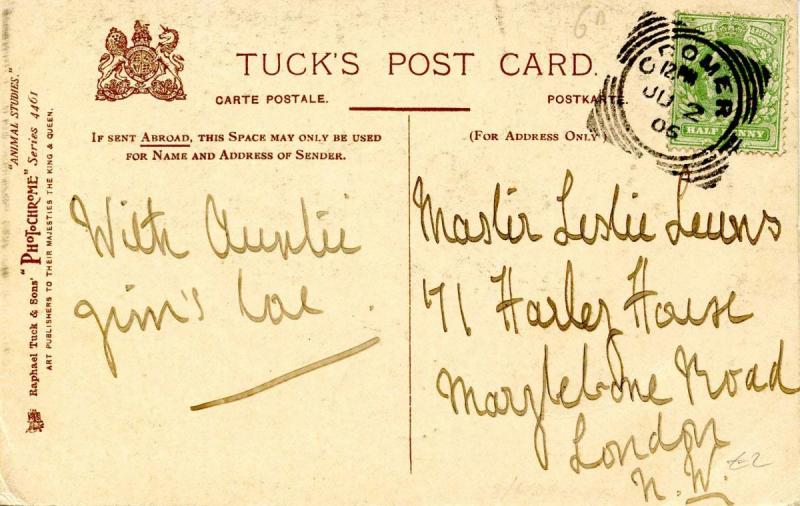 TUCK'S POST CARD.
CARTE POSTALE.
POSTKARTE.
IF SENT ABROAD, THIS SPACE MAY ONLY BE USED
FOR NAME AND ADDRESS OF SENDER.
(FOR ADDRESS ONLY
"ANIMAL STUDIES."
Raphael Tuck & Sons' "PHOTOCHROME" Series 4461
ART PUBLISHERS TO THEIR MAJESTIES THE KING & QUEEN.
CROMER
12
JU 2
06
HALF PENNY
6D
With Auntie
gim's love.
Master Leslie Lewns
71 Harley House
Marylebone Road
London
N.W.
£2